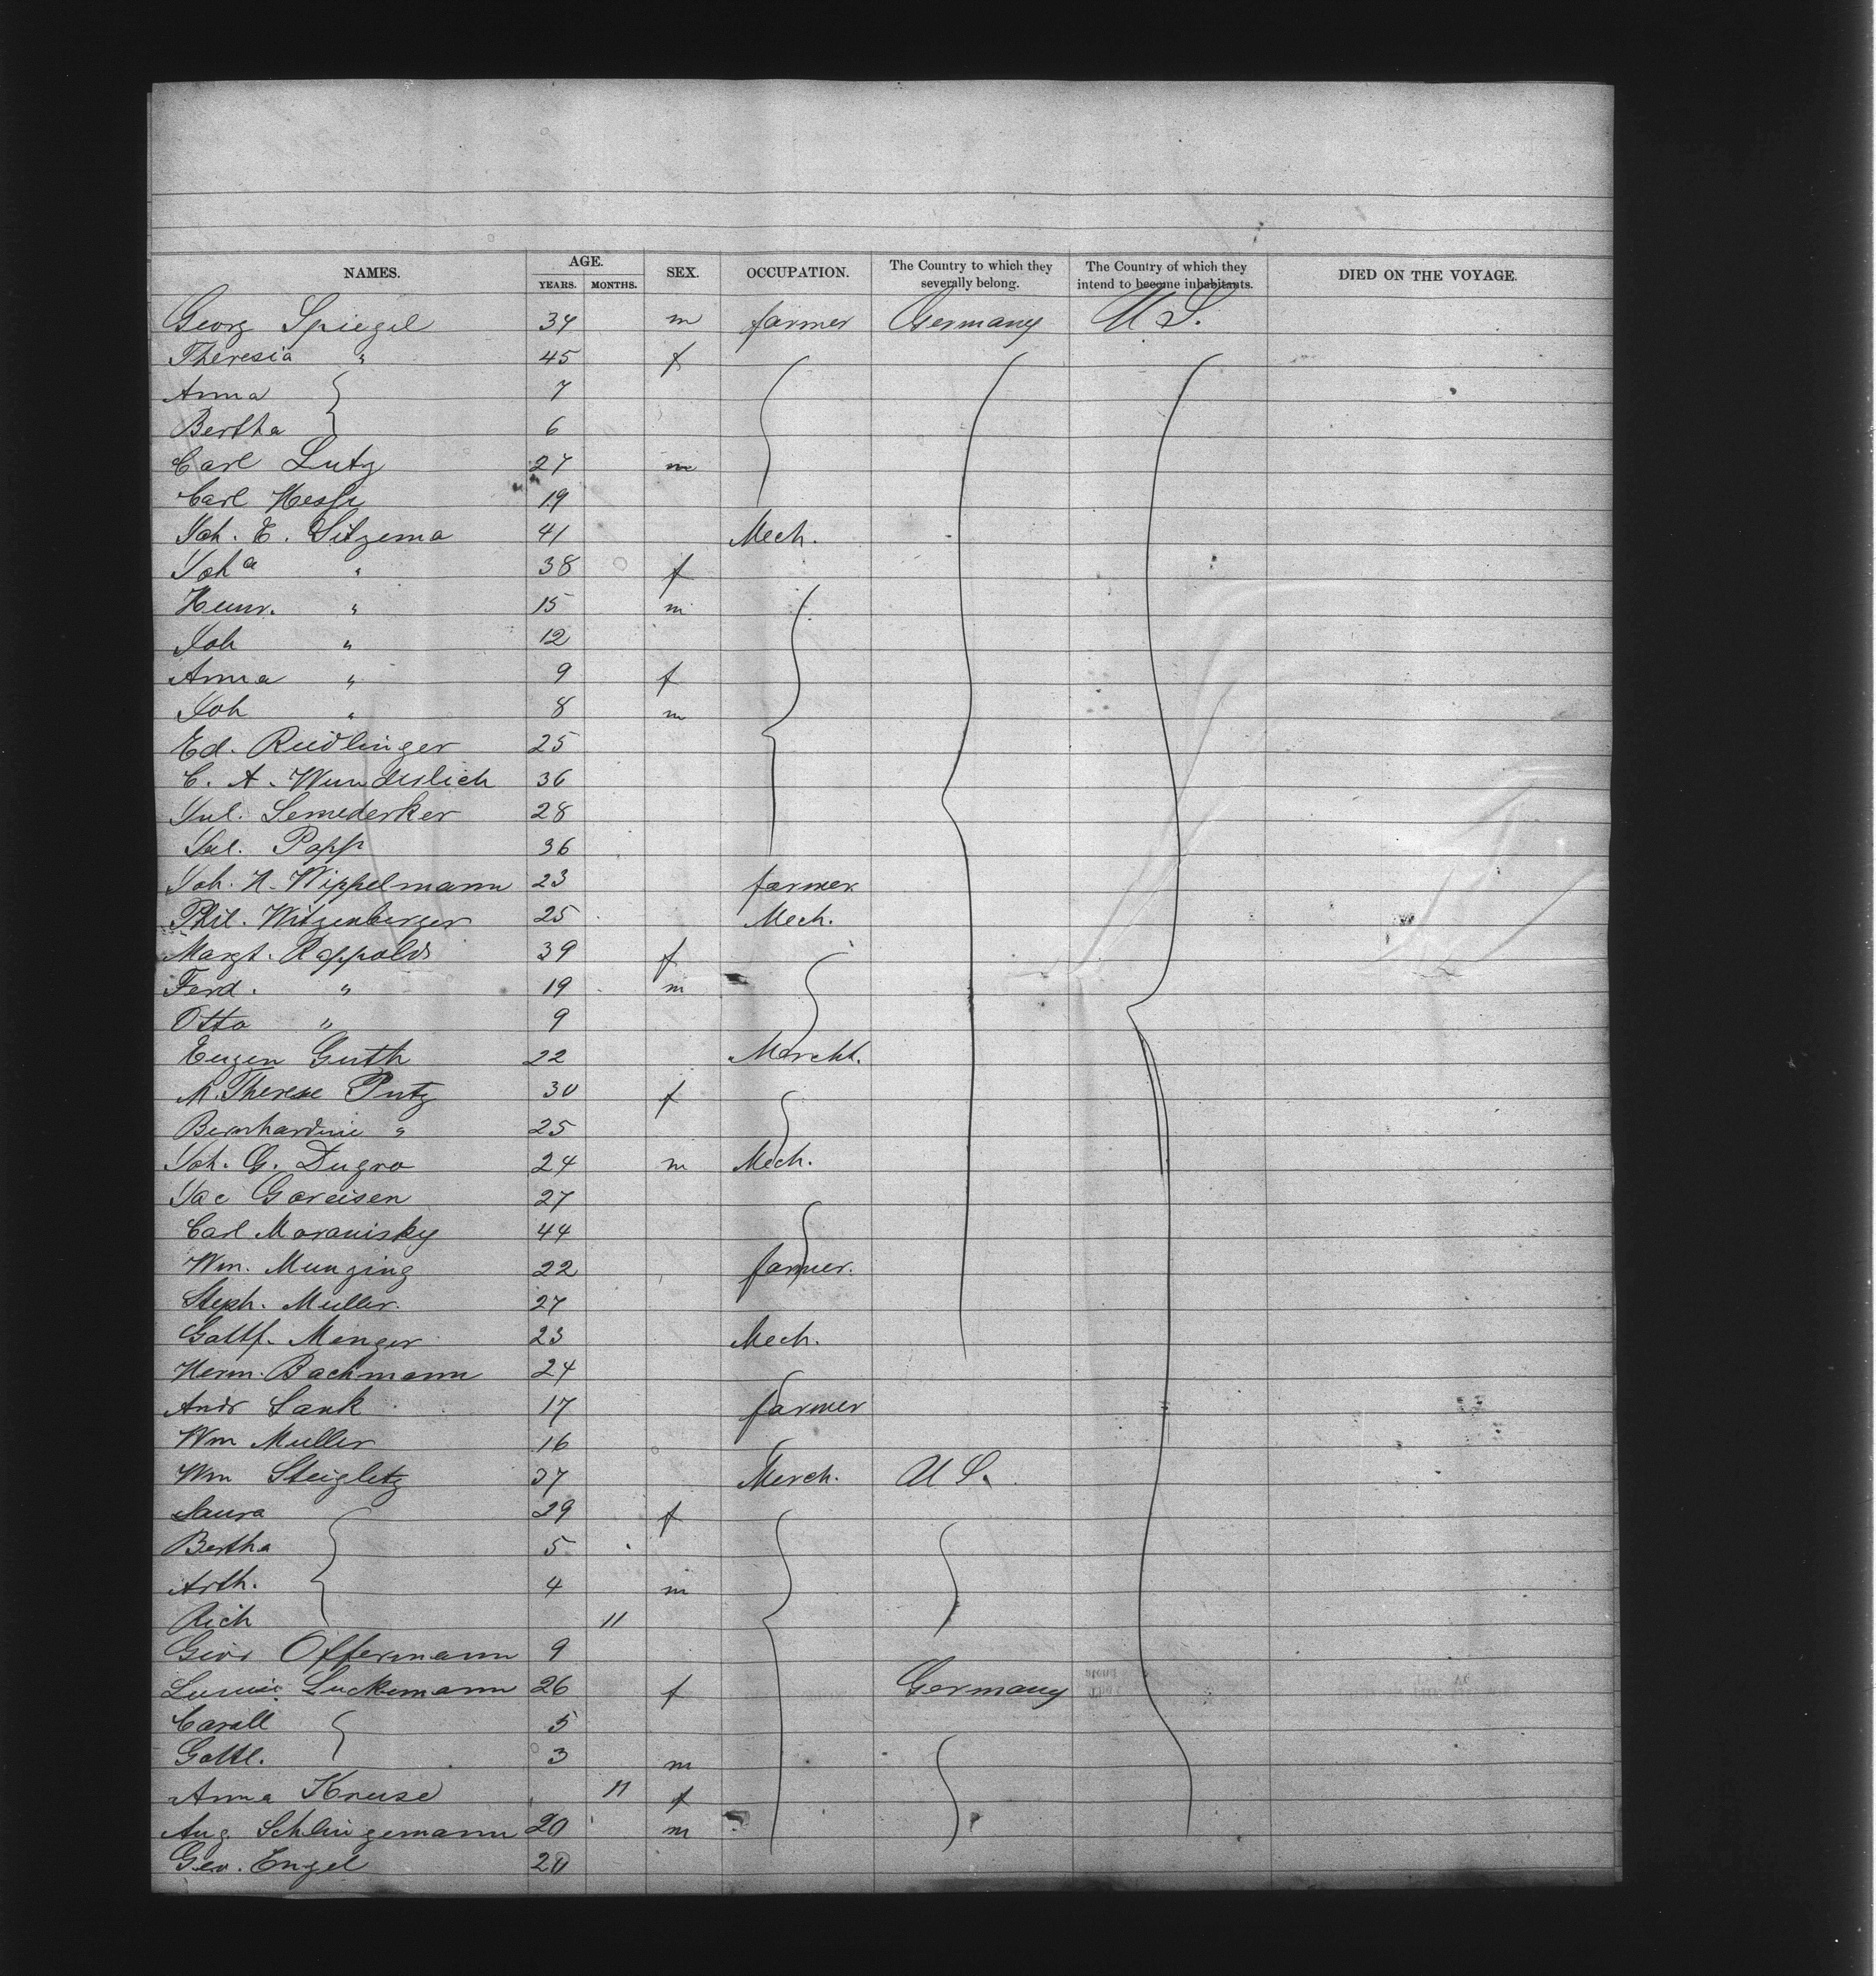 NAMES. AGE. SEX. OCCUPATION. The Country to which they severally belong. The Country of which they intend to become inhabitants. DIED ON THE VOYAGE.
YEARS. MONTHS.
Georg Spiegel 34 m farmer Germany U S.
Theresia " 45 f
Anna 7
Bertha 6
Carl Lutz 27 m
Carl Hesse 19
Joh. E. Sitzema 41 Mech.
Joh a " 38 f
Heinr. " 15 m
Joh " 12
Anna " 9 f
Joh " 8 m
Ed. Riedlinger 25
C. A. Wunderlich 36
Jul. Semederker 28
Jul. Popp 36
Joh. H. Wippelmann 23 farmer
Phil. Witzenberger 25 Mech.
Margt. Rappold 39 f
Ferd. " 19 m
Otto " 9
Eugen Guth 22 Marcht.
M. Therese Putz 30 f
Bernhardine " 25
Joh. G. Dugro 24 m Mech.
Jac Gareisen 27
Carl Moravisky 44
Wm. Munzing 22 farmer.
Steph. Muller. 27
Gottf. Menger 23 Mech.
Herm. Bachmann 24
Andr Lank 17 farmer
Wm Muller 16
Wm Steigletz 37 Merch. U S.
Laura 29 f
Bertha 5
Arth. 4 m
Rich 11
Geor Offermann 9
Luckemann 26 f Germany
5
Gottl. 3 m
Anna Kruse 11 f
Aug. Schlingemann 20 m
Geo. Engel 20